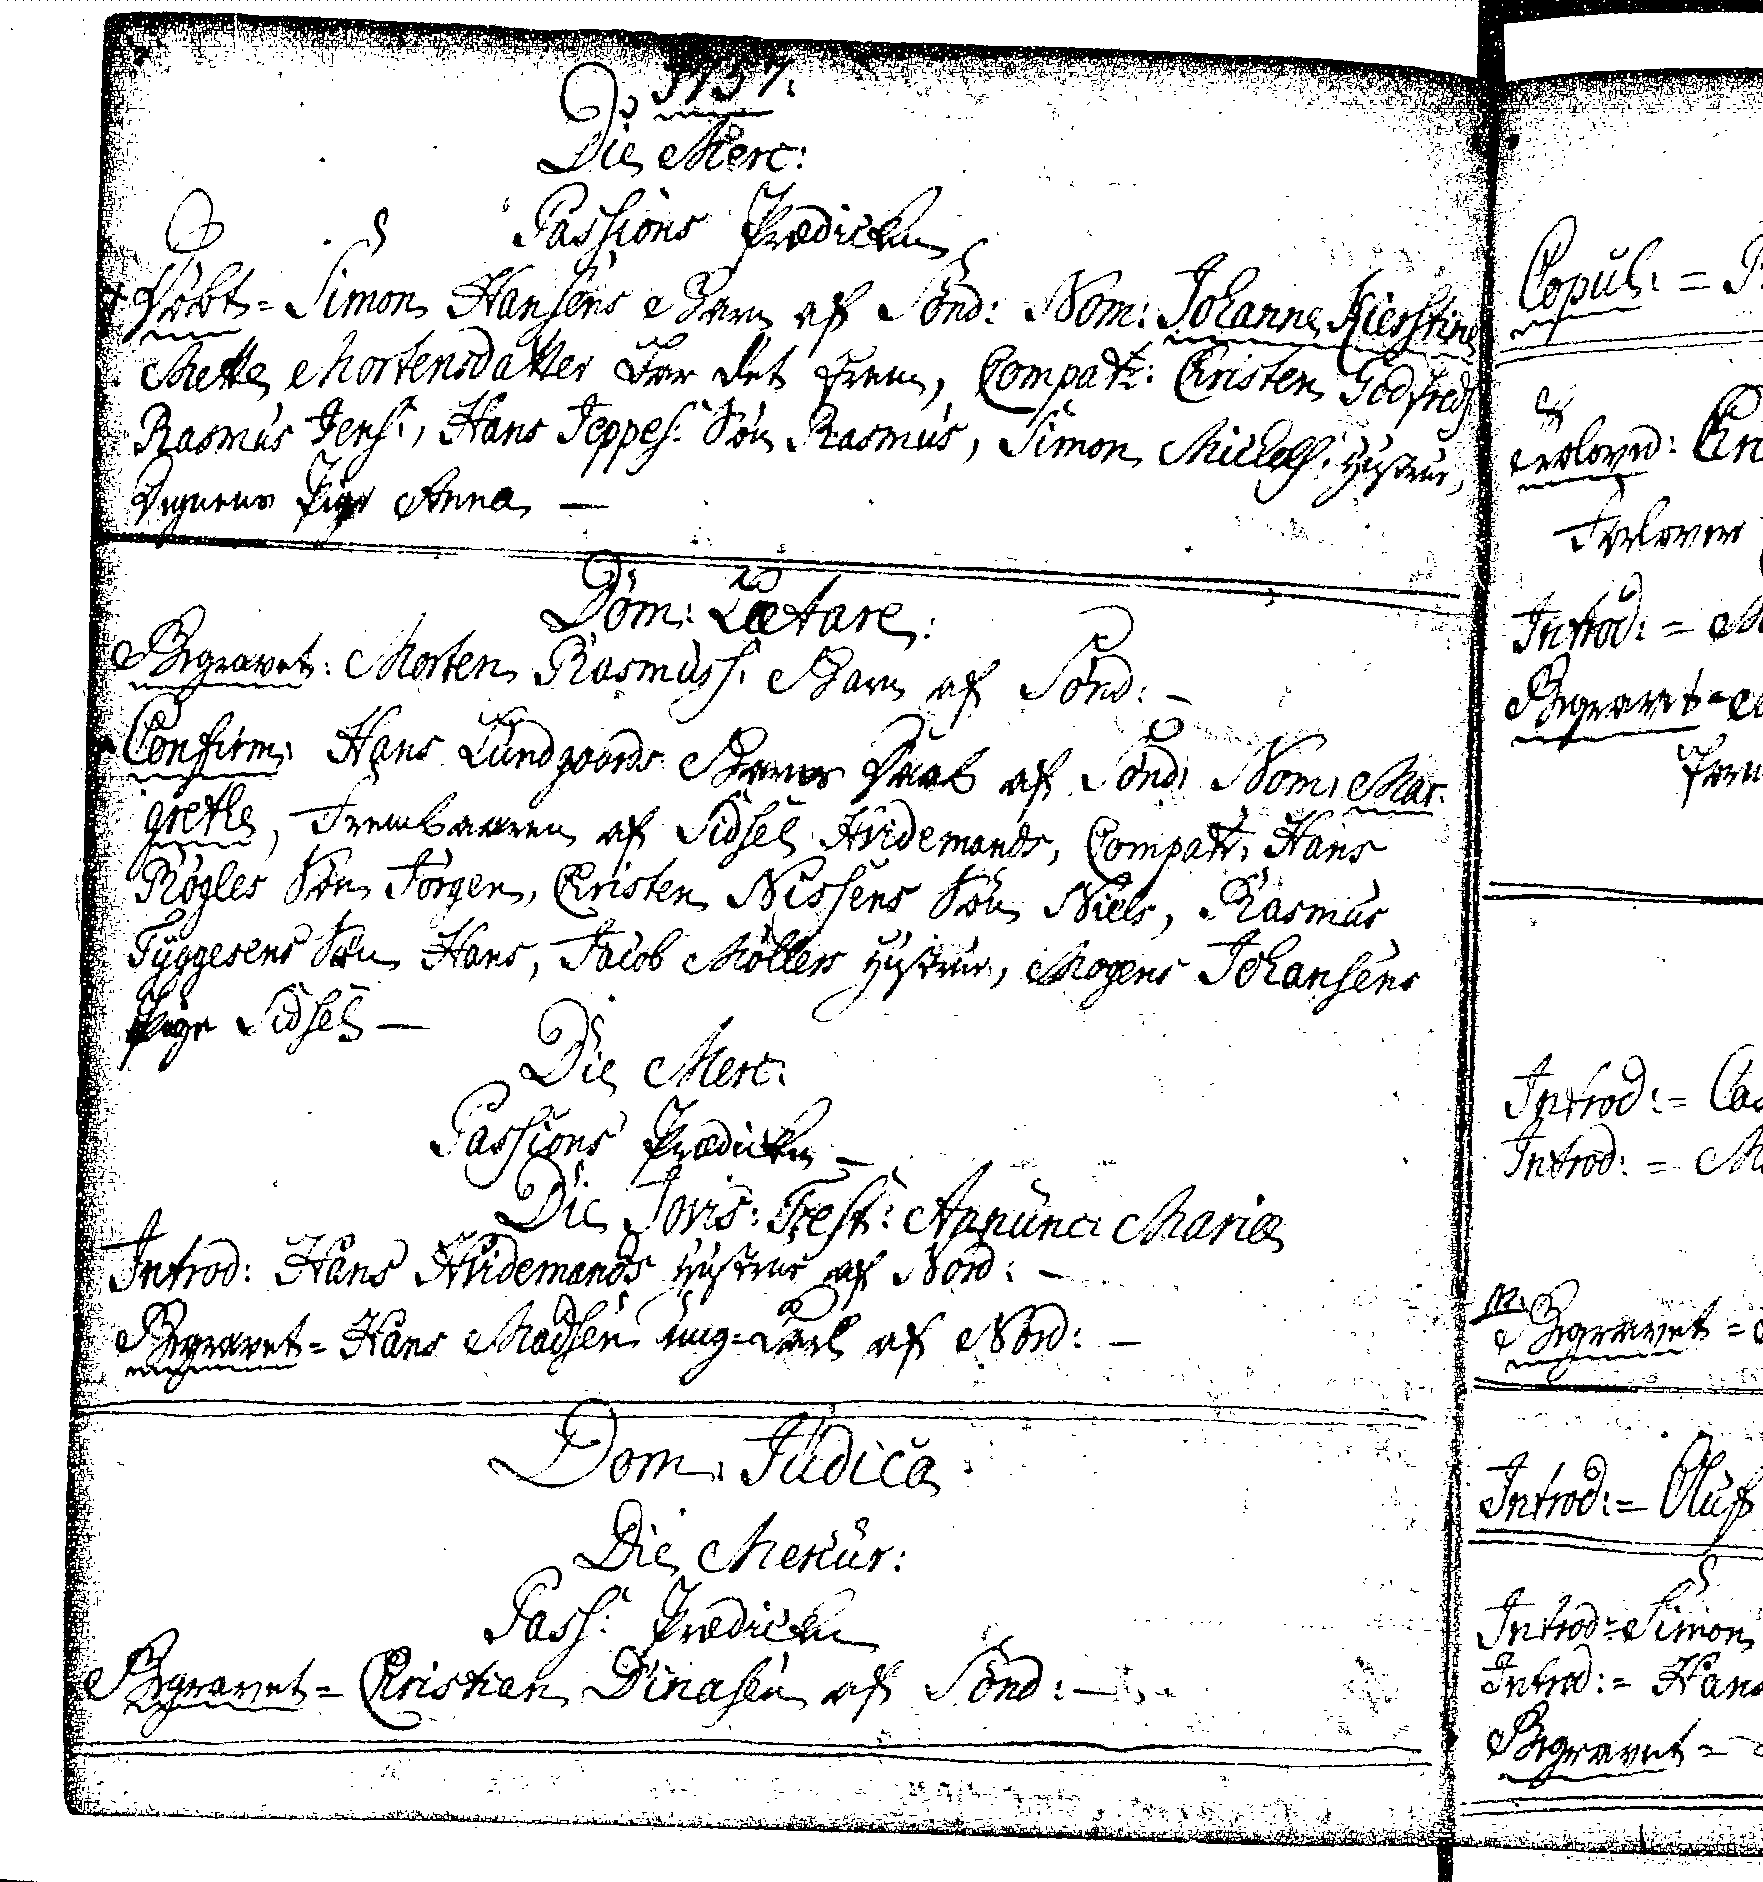 1737.
Die Merc:
Passions Prædicken
Døbt = Simon Hansens Barn af Sönd: Nom: Johanne Kierstine
Mette Mortensdatter bar det frem, Compatr: Cristen Godfreds:
Rasmus Jens:, Hans Jeppes: Sön Rasmus, Simon Michels: Hustrue,
Degnens Pige Anna —
Dom: Lætare:
Begravet: Morten Rasmuss: Barn af Sönd: —
Confirm: Hans Lundgaards Barns Daab af Sönd: Nom: Mar-
grethe, Frembaaren af Sidsel Hvidemands, Compatr: Hans
Rögles Sön Jörgen, Cristen Nissens Sön Niels, Rasmus
Tyggesens Sön Hans, Jacob Möllers Hustrue, Mogens Johansens
Pige Sidsel —
Die Merc:
Passions Prædicken —
Die Jovis: Fest: Annunc: Mariæ
Introd: Hans Hvidemands Hustrue af Nord: —
Begravet = Hans Madsen ung-Karl af Nord: —
Dom: Judica
Die Mercur:
Pass: Prædicken
Begravet = Cristian Dinasen af Sönd: —
Copul: =
Troloved:
Forlover
Introd: =
Begravet =
Introd: =
Introd: =
Begravet =
Introd: = Oluf
Introd: = Simon
Introd: = Hans
Begravet =